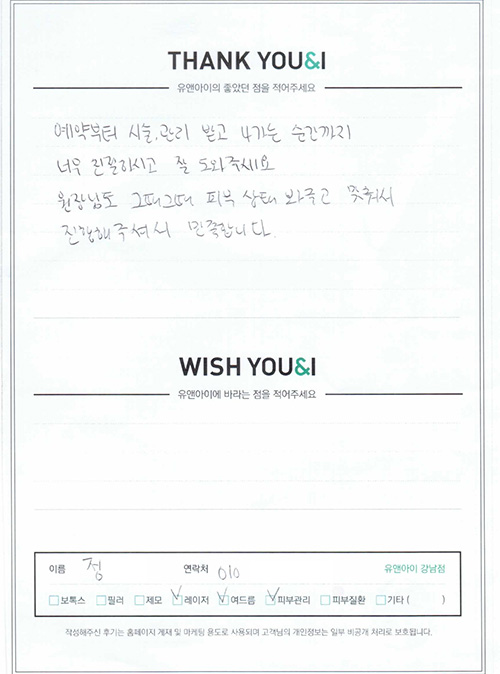 THANK YOU&I
유앤아이의 좋았던 점을 적어주세요
예약부터 시술,관리 받고 나가는 순간까지
너무 친절하시고 잘 도와주세요
원장님도 그때그때 피부 상태 봐주고 맞춰서
진행해주셔서 만족합니다.
WISH YOU&I
유앤아이에 바라는 점을 적어주세요
이름 정 연락처 010 유앤아이 강남점
보톡스 필러 제모 레이저 여드름 피부관리 피부질환 기타 ( )
작성해주신 후기는 홈페이지 게재 및 마케팅 용도로 사용되며 고객님의 개인정보는 일부 비공개 처리로 보호됩니다.